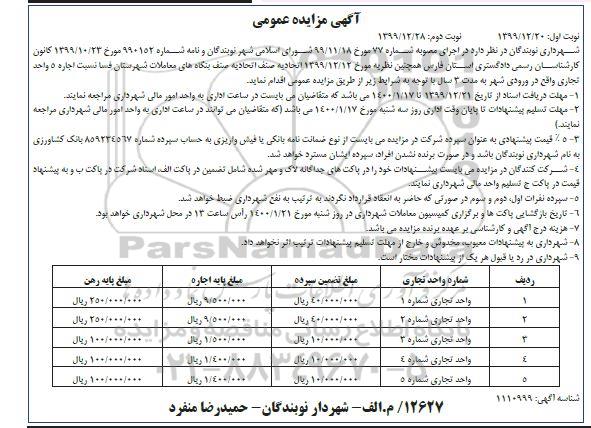 آگهی مزایده عمومی
نوبت اول: ۱۳۹۹/۱۲/۲۰ نوبت دوم: ۱۳۹۹/۱۲/۲۸
شهرداری نوبندگان در نظر دارد در اجرای مصوبه شماره ۷۷ مورخ ۹۹/۱۱/۱۸ شورای اسلامی شهر نوبندگان و نامه شماره ۹۹۰۱۵۲ مورخ ۱۳۹۹/۱۰/۲۳ کانون
کارشناسان رسمی دادگستری استان فارس همچنین نظریه مورخ ۱۳۹۹/۱۲/۱۲ اتحادیه صنف اتحادیه صنف بنگاه های معاملات شهرستان فسا نسبت اجاره ۵ واحد
تجاری واقع در ورودی شهر به مدت ۳ سال با توجه به شرایط زیر از طریق مزایده عمومی اقدام نماید.
۱- مهلت دریافت اسناد از تاریخ ۱۳۹۹/۱۲/۲۱ تا ۱۴۰۰/۱/۱۷ می باشد که متقاضیان می بایست در ساعت اداری به واحد امور مالی شهرداری مراجعه نمایند.
۲- مهلت تسلیم پیشنهادات تا پایان وقت اداری روز سه شنبه مورخ ۱۴۰۰/۱/۱۷ می باشد (که متقاضیان می توانند در ساعت اداری به واحد امور مالی شهرداری مراجعه
نمایند.)
۳- ۵ ٪ قیمت پیشنهادی به عنوان سپرده شرکت در مزایده می بایست از نوع ضمانت نامه بانکی یا فیش واریزی به حساب سپرده شماره ۸۵۹۲۳۴۵۶۷ بانک کشاورزی
به نام شهرداری نوبندگان باشد و در صورت برنده نشدن افراد، سپرده ایشان مسترد خواهد شد.
۴- شرکت کنندگان در مزایده می بایست پیشنهادات خود را در پاکت های جداگانه لاک و مهر شده شامل تضمین در پاکت الف، اسناد شرکت در پاکت ب و به پیشنهاد
قیمت در پاکت ج تسلیم واحد مالی شهرداری نمایند.
۵- سپرده نفرات اول، دوم و سوم در صورتی که حاضر به انعقاد قرارداد نگردند به ترتیب به نفع شهرداری ضبط خواهد شد.
۶- تاریخ بازگشایی پاکت ها و برگزاری کمیسیون معاملات شهرداری در روز شنبه مورخ ۱۴۰۰/۱/۲۱ رأس ساعت ۱۳ در محل شهرداری خواهد بود.
۷- هزینه درج آگهی و کارشناسی بر عهده برنده مزایده می باشد.
۸- شهرداری به پیشنهادات معیوب، مخدوش و خارج از مهلت تسلیم پیشنهادات ترتیب اثر نخواهد داد.
۹- شهرداری در رد یا قبول هر یک از پیشنهادات مختار است.
ParsNamadData
ردیف شماره واحد تجاری مبلغ تضمین سپرده مبلغ پایه اجاره مبلغ پایه رهن
۱ واحد تجاری شماره ۱ ۴۰/۰۰۰/۰۰۰ ریال ۹/۵۰۰/۰۰۰ ریال ۲۵۰/۰۰۰/۰۰۰ ریال
۲ واحد تجاری شماره ۲ ۴۰/۰۰۰/۰۰۰ ریال ۹/۵۰۰/۰۰۰ ریال ۲۵۰/۰۰۰/۰۰۰ ریال
۳ واحد تجاری شماره ۳ ۱۰/۰۰۰/۰۰۰ ریال ۱/۵۰۰/۰۰۰ ریال ۱۰۰/۰۰۰/۰۰۰ ریال
۴ واحد تجاری شماره ۴ ۱۰/۰۰۰/۰۰۰ ریال ۱/۴۰۰/۰۰۰ ریال ۱۰۰/۰۰۰/۰۰۰ ریال
۵ واحد تجاری شماره ۵ ۱۰/۰۰۰/۰۰۰ ریال ۱/۴۰۰/۰۰۰ ریال ۱۰۰/۰۰۰/۰۰۰ ریال
پایگاه اطلاع رسانی مناقصه و مزایده
۰۲۱-۸۸۳۴۹۶۷۰-۵
شناسه آگهی: ۱۱۱۰۹۹۹
۱۲۶۲۷/ م.الف- شهردار نوبندگان- حمیدرضا منفرد